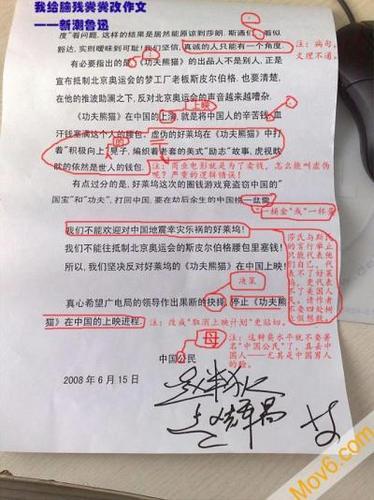 我给脑残粪粪改作文
——新潮鲁迅
度"看问题,这样的结果是居然能原谅到莎朗.斯通们,看似
豁达,实则暧昧到可耻!我们坚信,真诚的人只能有一个角度.
注:病句,
文理不通。
有必要指出的是,《功夫熊猫》的出品人不是别人,正是
宣布抵制北京奥运会的梦工厂老板斯皮尔伯格.也要清楚,
在他的推波助澜之下,反对北京奥运会的声音越来越嘈杂.
上映
《功夫熊猫》在中国的上演,就是将中国人的辛苦钱,血
汗钱塞满这个人的腰包.虚伪的好莱坞在《功夫熊猫》中打
的
着"积极向上"幌子,编织着老套的美式"励志"故事,虎视眈
眈的依然是世人的钱包.
注:商业电影就是为了卖钱,怎么能叫虚伪
呢?严重的逻辑错误!
有点过分的是,好莱坞这次的圈钱游戏竟盗窃中国的
"国宝"和"功夫",打回中国,要在劫后余生的中国捞一盆黄
一桶金"或"一杯羹
我们不能欢迎对中国地震幸灾乐祸的好莱坞!
我们不能往抵制北京奥运会的斯皮尔伯格腰包里塞钱!
所以,我们坚决反对好莱坞的《功夫熊猫》在中国上映!
莎氏与斯氏
的言行举止
只能代表他
们自己,代
表不了好莱
坞,更代表
不了美国人
民。请作者
不要四处树
立假想敌。
决策
真心希望广电局的领导作出果断的抉择,停止《功夫熊
猫》在中国的上映进程.
注:改成"取消上映计划"更贴切。
母
中国公民
注:这种粪水平就不要署
名"中国公民"了,真丢中
国人——尤其是中国男人
的脸。
2008 年 6 月 15 日
Mov6.com